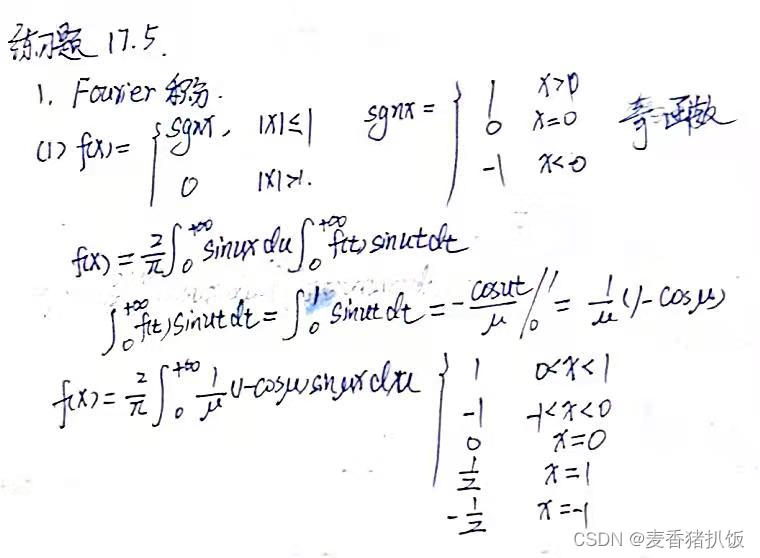 练习题 17.5.
1. Fourier 积分.
(1) f(x) = { sgnx, |x|≤1 sgnx = { 1 x>0 奇函数
0 |x|>1. 0 x=0
-1 x<0
f(x) = 2/π ∫₀^{+∞} sinux du ∫₀^{+∞} f(t) sinut dt
∫₀^{+∞} f(t) sinut dt = ∫₀^1 sinut dt = - cosut/μ |₀^1 = 1/μ (1-cosμ)
f(x) = 2/π ∫₀^{+∞} 1/μ (1-cosμ) sinμx dμ { 1 0<x<1
-1 -1<x<0
0 x=0
1/2 x=1
-1/2 x=-1
CSDN @麦香猪扒饭